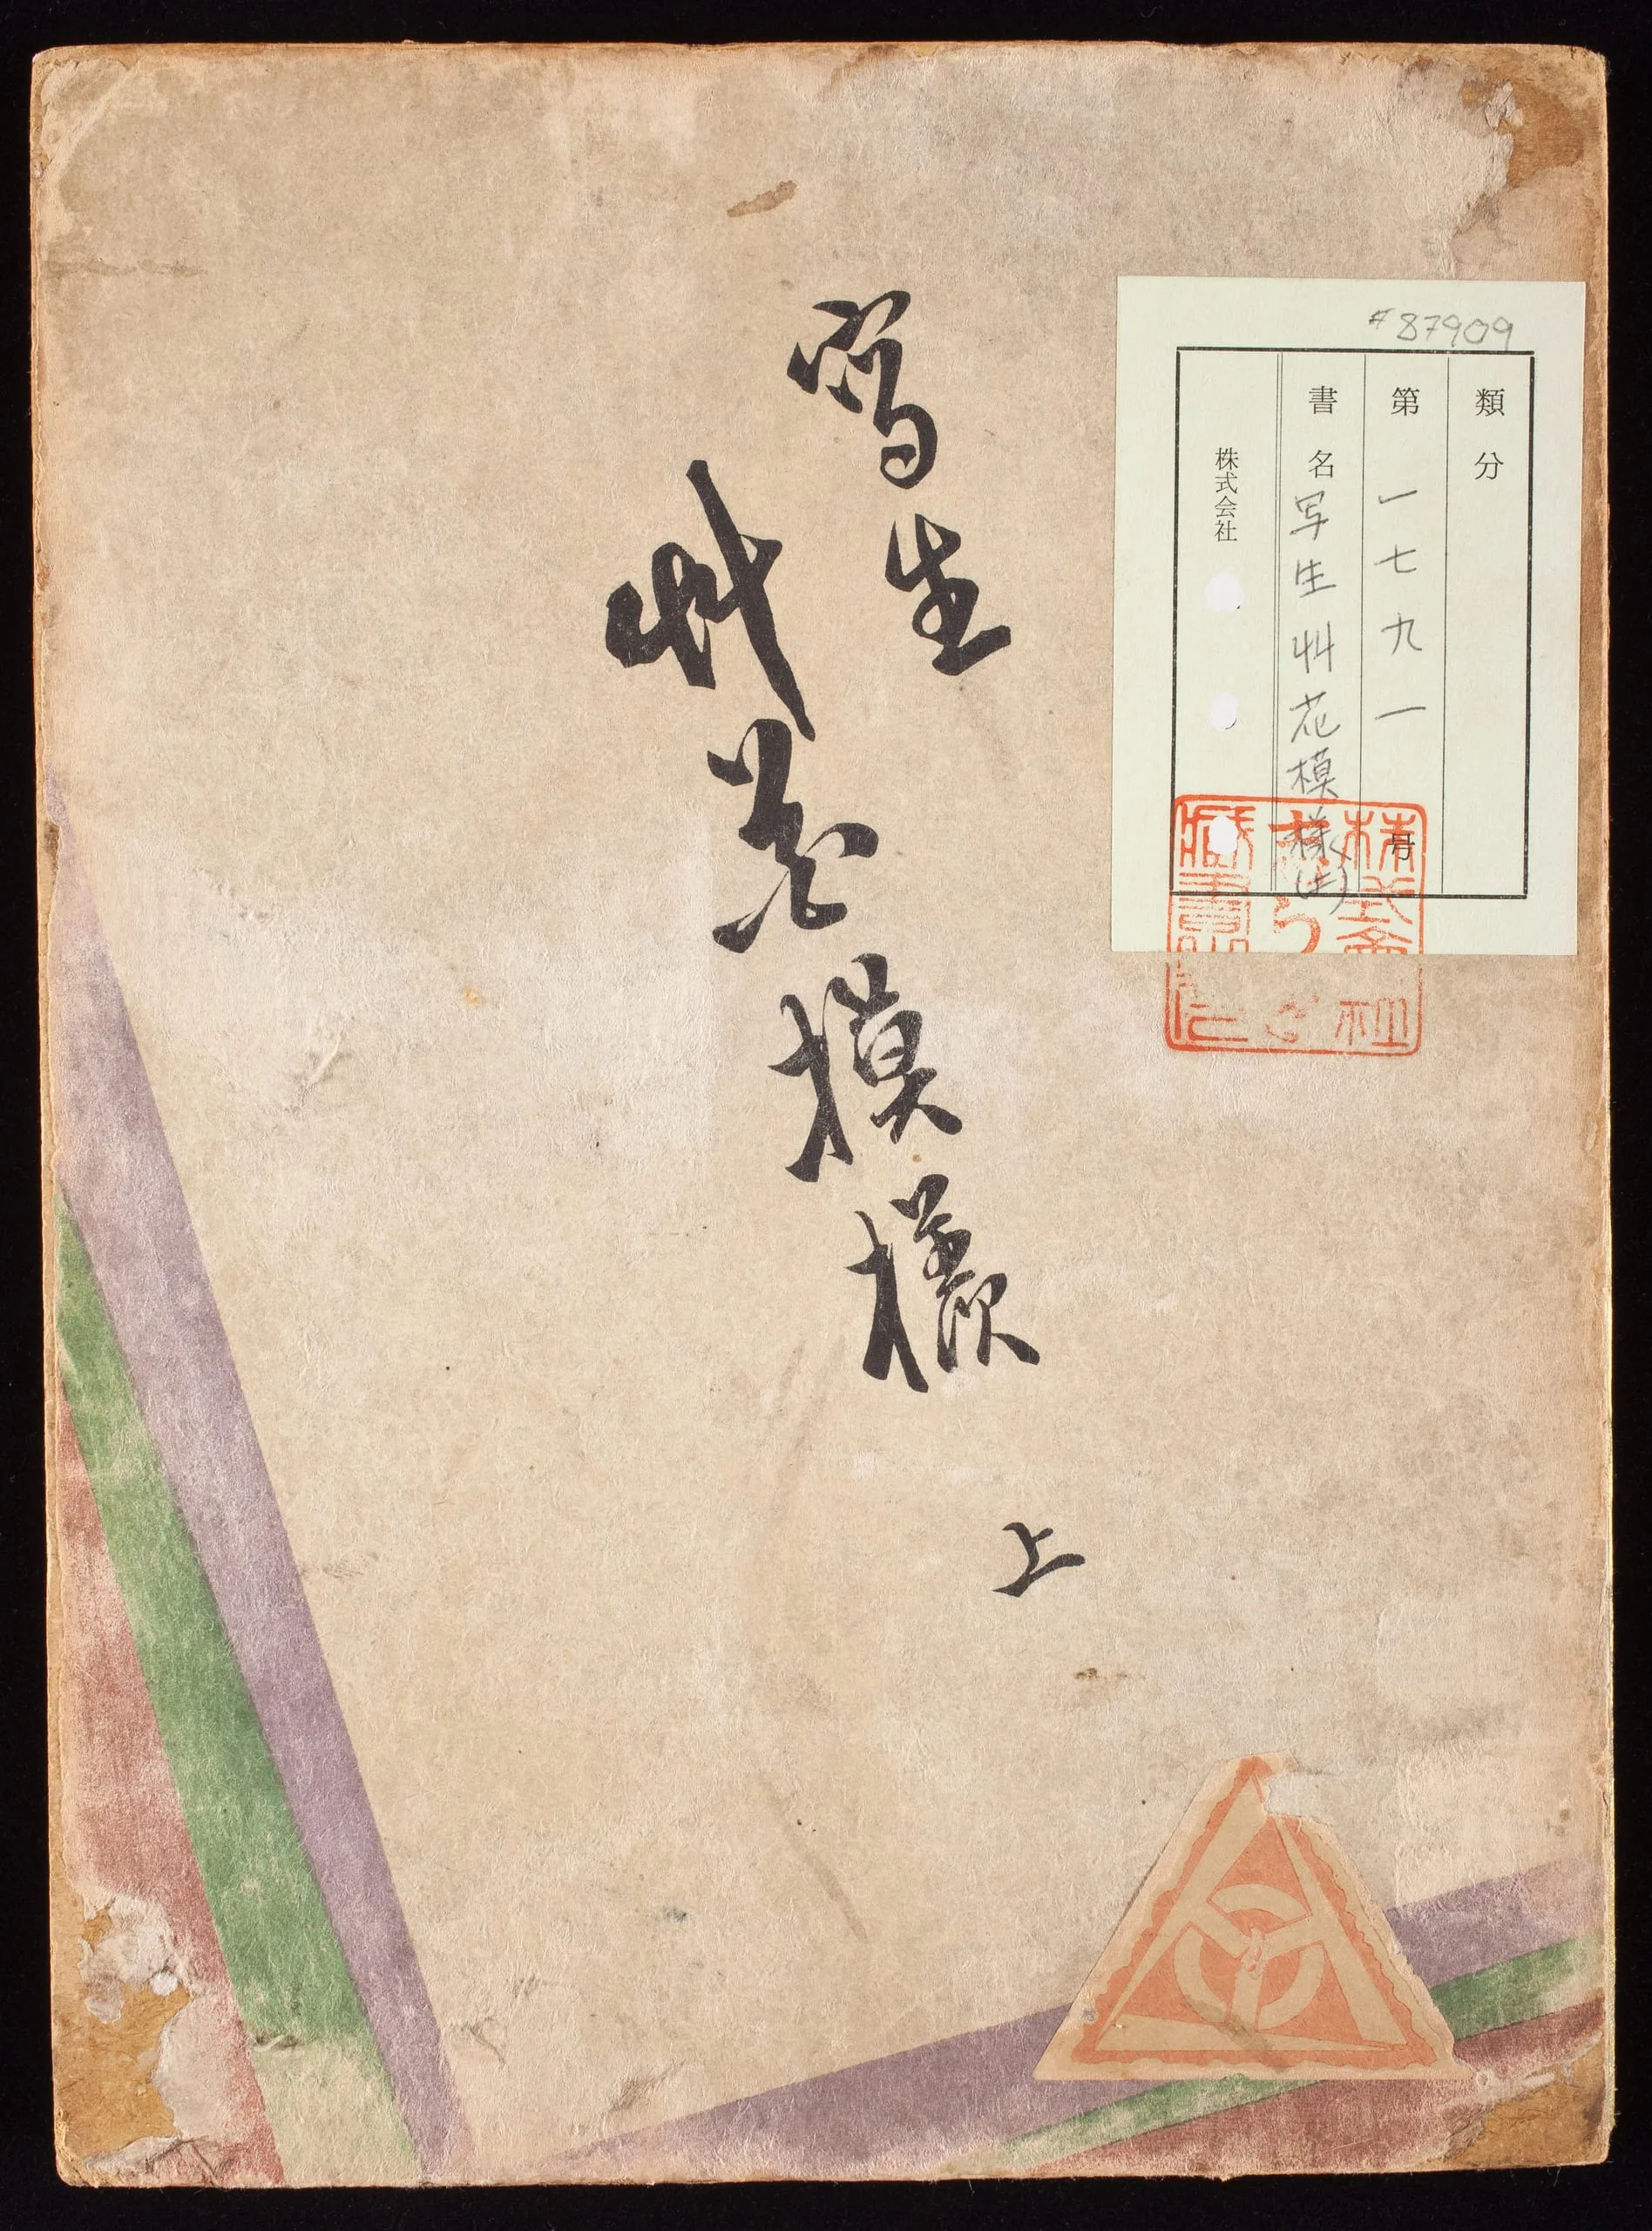 写生
艸花模様
上
#87909
類分
第一七九一号
書名 写生艸花模様(上)
株式会社